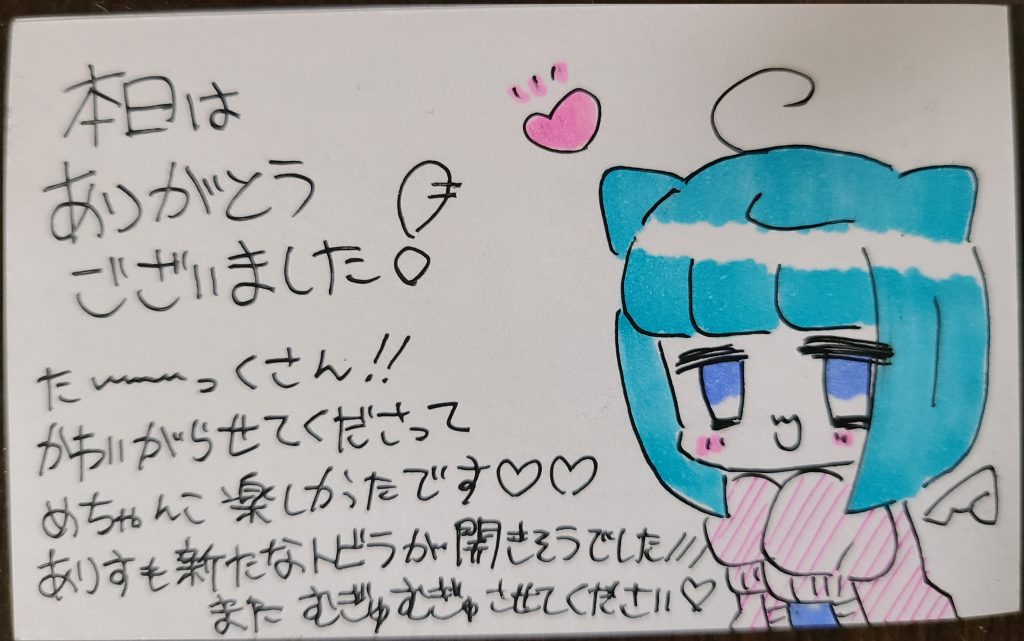 本日は
ありがとう
ございました!
たーーーっくさん!!
かわいがらせてくださって
めちゃんこ楽しかったです♡♡
ありすも新たなトビラが開きそうでした///
またむぎゅむぎゅさせてください♡